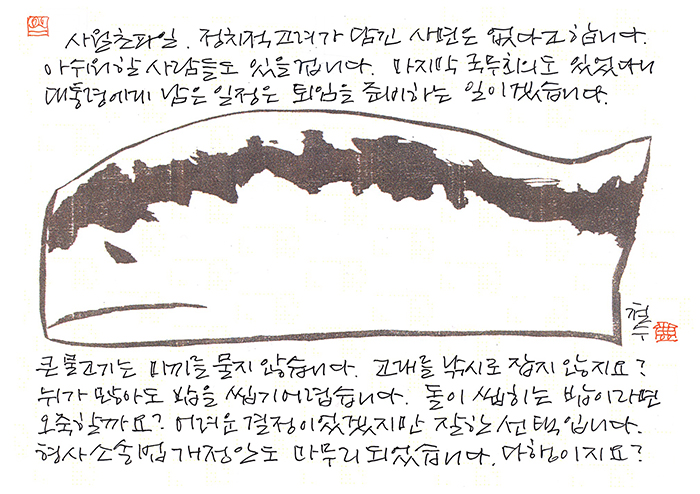 사월초파일. 정치적 고려가 담긴 사면은 없다고 합니다.
아쉬워할 사람들도 있을 겁니다. 마지막 국무회의도 있었다니
대통령에게 남은 일정은 퇴임을 준비하는 일이겠습니다.
철수
큰 물고기는 미끼를 물지 않습니다. 고래를 낚시로 잡지 않지요?
뉘가 많아도 밥을 씹기 어렵습니다. 돌이 씹히는 밥이라면
오죽할까요? 어려운 결정이었겠지만 잘한 선택입니다.
형사소송법 개정안도 마무리 되었습니다. 다행이지요?